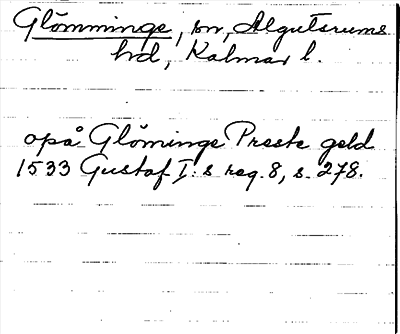 Glömminge, sn, Algutsrums
hd, Kalmar l.
opå Glöminge Preste geld
1533 Gustaf I:s reg. 8, s. 278.